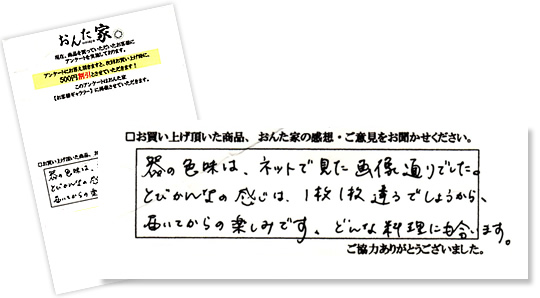 おんた家。
現在、商品を買っていただいたお客様に
アンケートを実施しております。
アンケートにお答え頂きますと、次回お買い上げ時に、
500円割引とさせていただきます！
このアンケートはおんた家
【お客様ギャラリー】に掲載させていただきます。
□お買い上げ頂いた商品、お
器の色味は、
とびかんなの感
届いてからの楽
□お買い上げ頂いた商品、おんた家の感想・ご意見をお聞かせください。
器の色味は、ネットで見た画像通りでした。
とびかんなの感じは、1枚1枚違うでしょうから、
届いてからの楽しみです、どんな料理にも合います。
ご協力ありがとうございました。